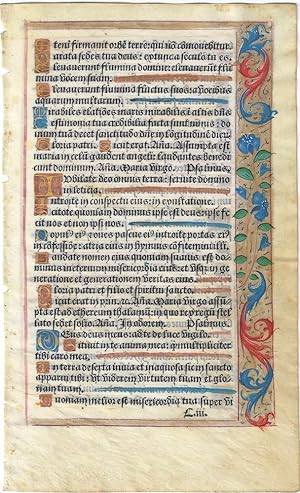 Eteni firmauit orbē terre: qui nō cōmouebitur.
Parata sedes tua deus: ex tunc a seculo tu es.
Eleuauerunt flumina domine: eleuauerūt flu
mina vocem suam.
Eleuauerunt flumina fluctus suos: a vocibus
aquarum multarum.
Mirabiles elatiões maris: mirabilis ī altis dñs
Testimonia tua credibilia facta sunt nimis: do
mum tuā decet sanctitudo dñe in lōgitudinē dierū
Gloria patri. Sicut erat. Aña. Assumpta est
maria in celū gaudent angeli: laudantes benedi
cunt dominum. Aña. Maria virgo. Psalmus.
Jubilate deo omnis terra: seruite domino
in leticia.
Introite in conspectu eius: in exultatione.
Scitote quoniam dominus ipse est deus: ipse fe
cit nos et non ipsi nos.
oues pascue ei⁹ introite portas ei⁹
in cōfessiōe: atria eius in hymnis cōfitemini illi.
Laudate nomen eius quoniam suauis est do
minus in eternum misericordia eius: et vsq̄ in ge
neratione et generationem veritas eius.
Gloria patri et filio et spiritui sancto.
Sicut erat in prin. ⁊c. Aña. Maria virgo assūp
ta est ad ethereum thalamū: in quo rex regū stel
lato sedet solio. Aña. In odorem. Psalmus.
Deus deus meus: ad te de luce vigilo.
Sitiuit in te anima mea: q̄ multipliciter
tibi caro mea.
In terra deserta inuia et inaquosa: sic in sancto
apparui tibi: vt viderem virtutem tuam et glo
riam tuam.
Quoniam melior est misericordia tua super vi
L.iii.